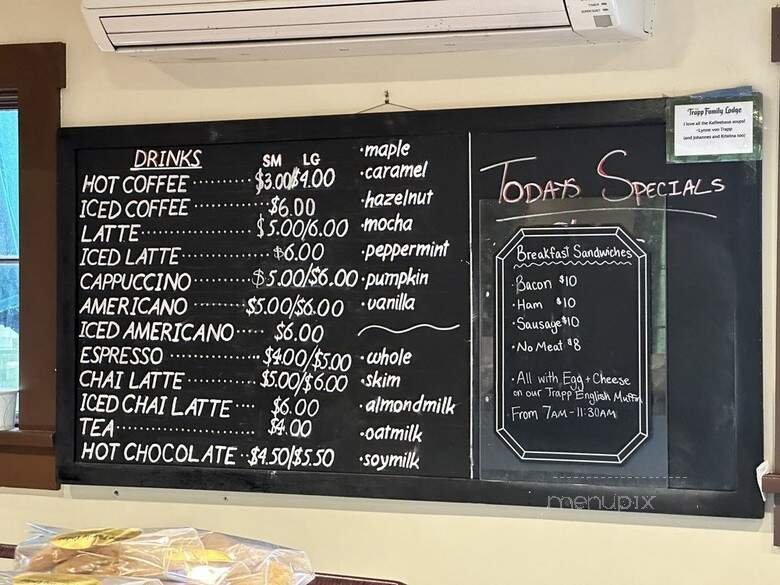 DRINKS
SM LG
HOT COFFEE ········· $3.00/$4.00
ICED COFFEE ········· $6.00
LATTE ············ $5.00/6.00
ICED LATTE ·········· $6.00
CAPPUCCINO ········ $5.00/$6.00
AMERICANO ········ $5.00/$6.00
ICED AMERICANO ···· $6.00
ESPRESSO ··········· $4.00/$5.00
CHAI LATTE ········· $5.00/$6.00
ICED CHAI LATTE ···· $6.00
TEA ················ $4.00
HOT CHOCOLATE ·· $4.50/$5.50
·maple
·caramel
·hazelnut
·mocha
·peppermint
·pumpkin
·vanilla
·whole
·skim
·almondmilk
·oatmilk
·soymilk
TODAYS SPECIALS
Breakfast Sandwiches
·Bacon $10
·Ham $10
·Sausage $10
·No Meat $8
·All with Egg + Cheese
on our Trapp English Muffin
From 7AM-11:30AM
Trapp Family Lodge
I love all the Kaffeehaus soups!
-Lynne von Trapp
(and Johannes and Kristina too)
menupix